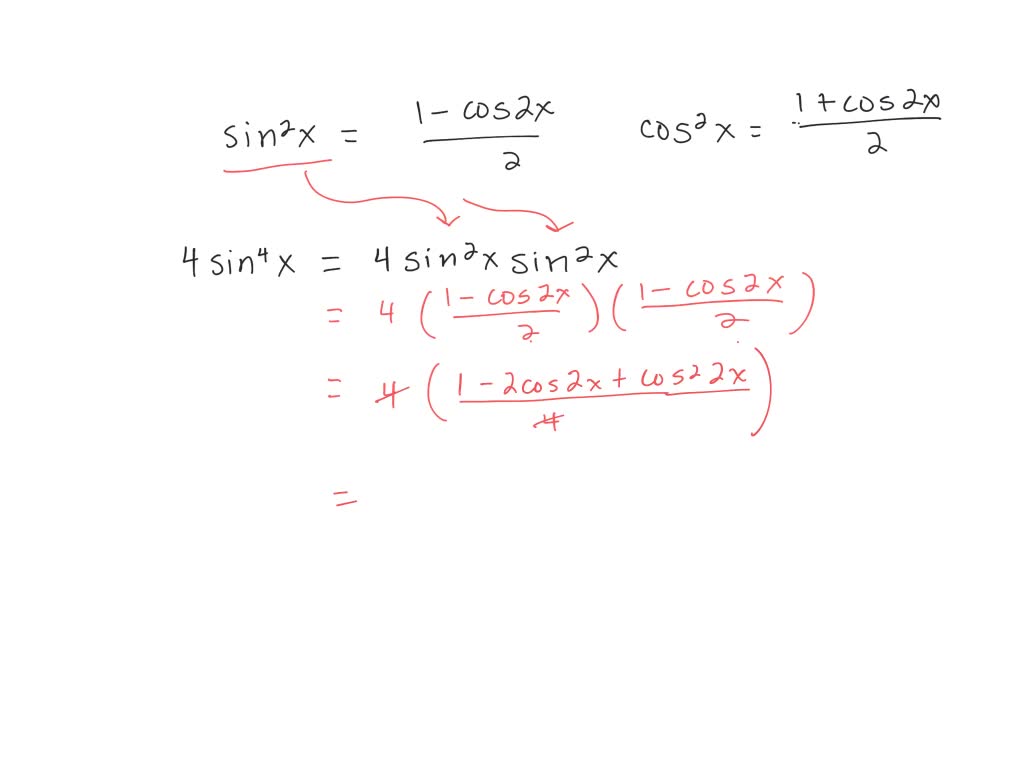 sin²x = (1 - cos2x)/2    cos²x = (1 + cos2x)/2
4 sin⁴x = 4 sin²x sin²x
= 4 ((1 - cos2x)/2) ((1 - cos2x)/2)
= 4 ((1 - 2cos2x + cos²2x)/4)
=